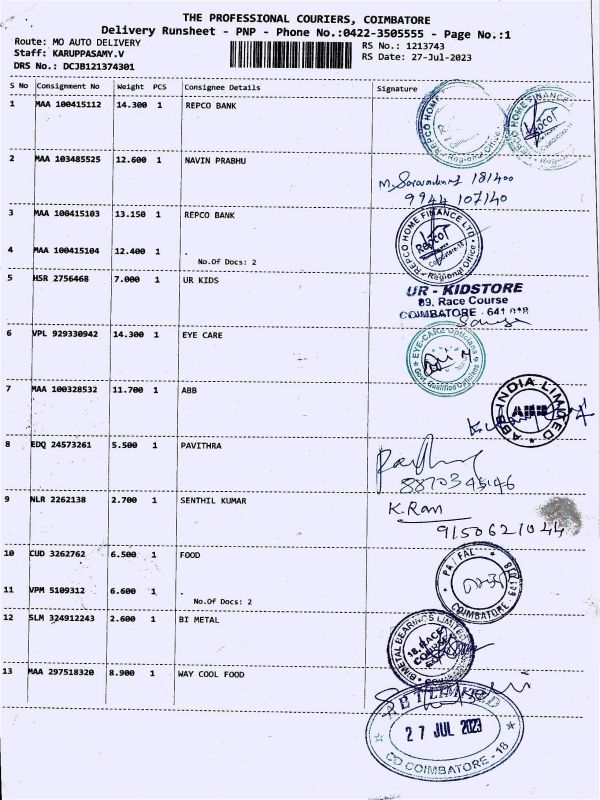 THE PROFESSIONAL COURIERS, COIMBATORE
Delivery Runsheet - PNP - Phone No.:0422-3505555 - Page No.:1
Route: MO AUTO DELIVERY
Staff: KARUPPASAMY.V
DRS No.: DCJB121374301
RS No.: 1213743
RS Date: 27-Jul-2023
S No Consignment No Weight PCS Consignee Details Signature
1 MAA 100415112 14.300 1 REPCO BANK
REPCO HOME
Regional Office
REPCO HOME FINANCE
REPCOT
2 MAA 103485525 12.600 1 NAVIN PRABHU
181400
9944 107140
3 MAA 100415103 13.150 1 REPCO BANK
REPCO HOME FINANCE LTD
REPCOT
Coimbatore-18
Regional Office
4 MAA 100415104 12.400 1
No.Of Docs: 2
5 HSR 2756468 7.000 1 UR KIDS
UR - KIDSTORE
89, Race Course
COIMBATORE - 641 018
6 VPL 929330942 14.300 1 EYE CARE
EYE-CARE Opticians
Govt. Qualified Opticians
7 MAA 100328532 11.700 1 ABB
ABB INDIA LIMITED
ABB
8 EDQ 24573261 5.500 1 PAVITHRA
8870345146
9 NLR 2262138 2.700 1 SENTHIL KUMAR
K.Ram
9150621044
10 CUD 3262762 6.500 1 FOOD
COIMBATORE
11 VPM 5109312 6.600 1
No.Of Docs: 2
12 SLM 324912243 2.600 1 BI METAL
BIMETAL BEARINGS LIMITED
18, RACE
COURSE
13 MAA 297518320 8.900 1 WAY COOL FOOD
LIMITED
27 JUL 2023
COIMBATORE - 18